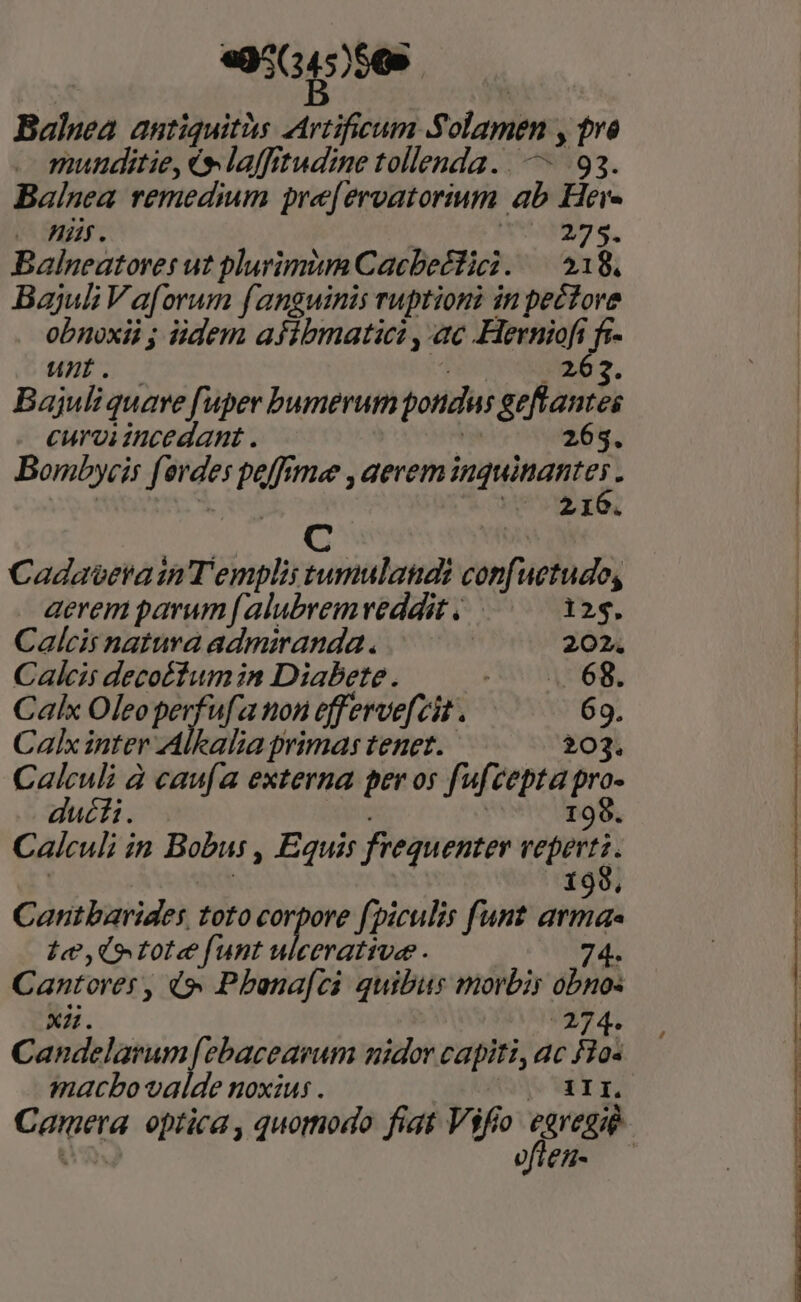 (345)
B
Balnea antiquitùs Artificum Solamen, pro
munditie, & laſſitudine tollenda. 93.
Balnea remedium præſervatorium ab Her-
niis. 275.
Balneatores ut plurimùm Cachectici. 218.
Bajuli Vaſorum ſanguinis ruptioni in pectore
obnoxii; iidem aſthmatici, ac Hernioſi fi-
unt. 263.
Bajuli quare ſuper humerum pondus geſtantes
curvi incedant. 265.
Bombycis ſordes peſſimæ, aerem inquinantes.
216.
C
Cadavera in Templis tumulandi conſuetudo,
aerem parum ſalubrem reddit. 125.
Calcis natura admiranda. 202.
Calcis decoctum in Diabete. 68.
Calx Oleo perfuſa non efferveſcit. 69.
Calx inter Alkalia primas tenet. 203.
Calculi à cauſa externa per os ſuſcepta pro-
ducti. 198.
Calculi in Bobus, Equis frequenter reperti.
198.
Cantharides toto corpore ſpiculis ſunt arma-
tæ, & totæ ſunt ulcerativæ. 74.
Cantores, & Phonaſci quibus morbis obno-
xii. 274.
Candelarum ſebacearum nidor capiti, ac ſto-
macho valde noxius. 111.
Camera optica, quomodo fiat Viſio egregiè
oſten-